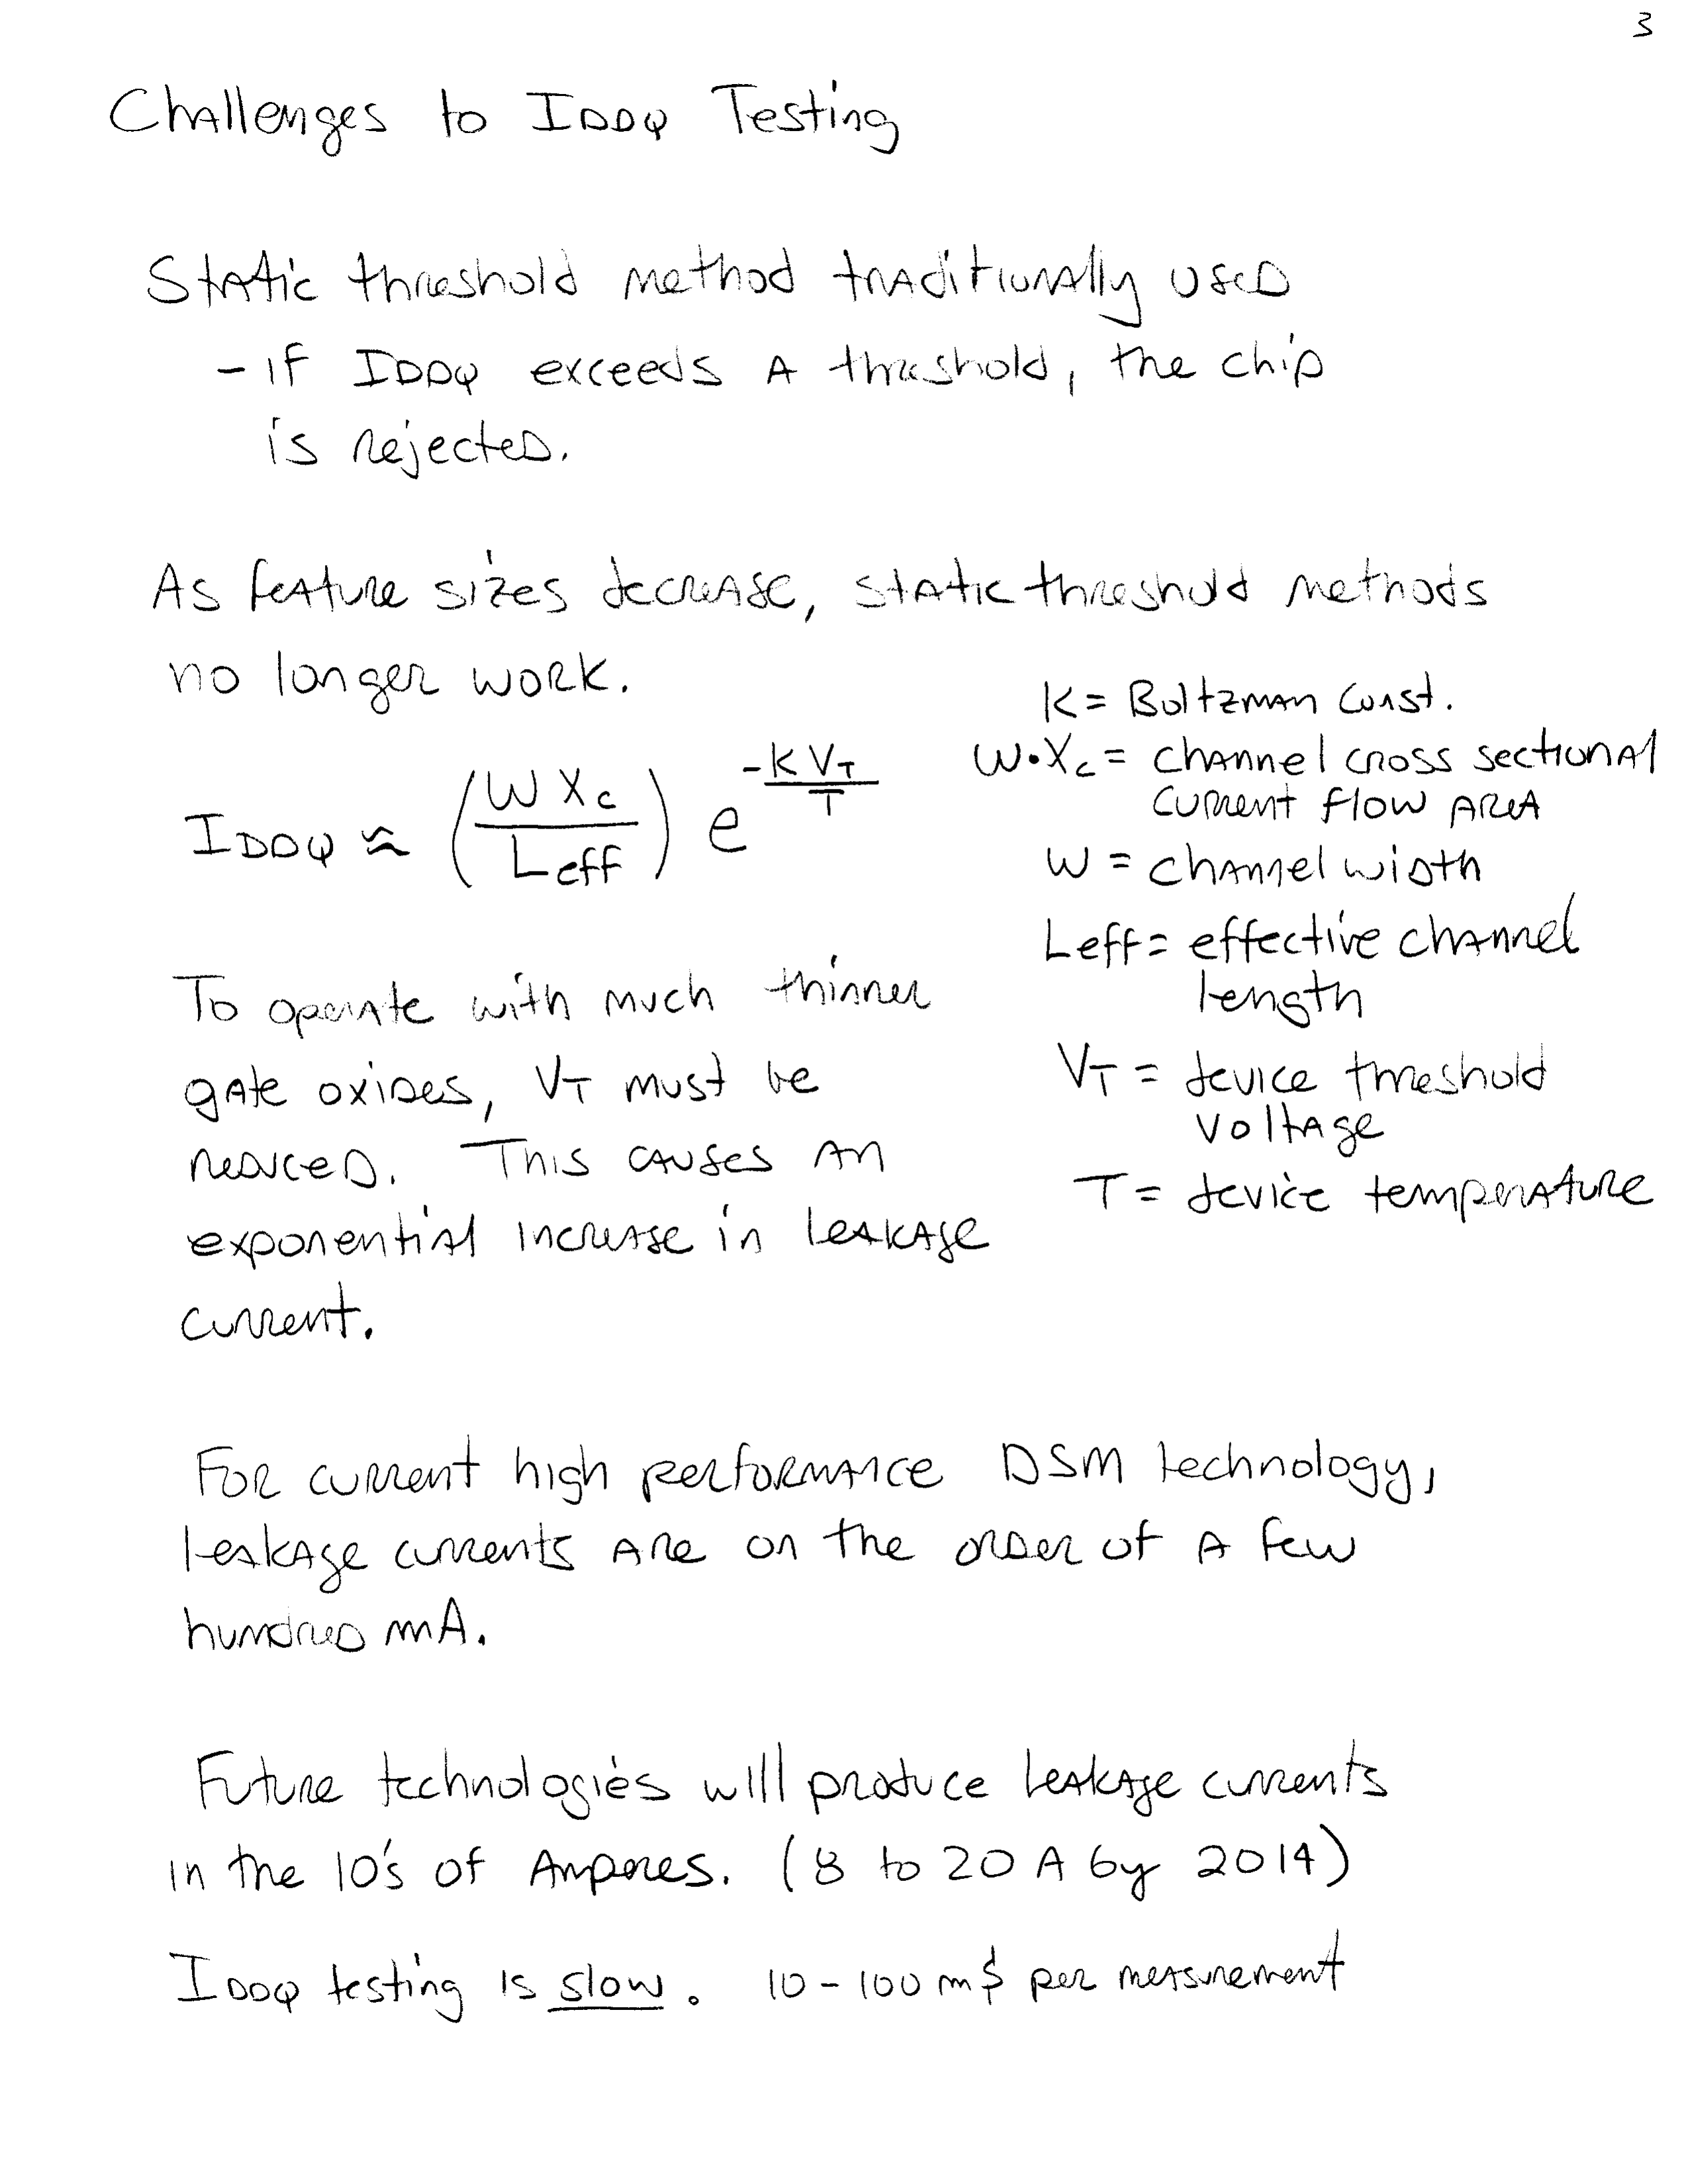 3
Challenges to IDDQ Testing
Static threshold method traditionally used
- if IDDQ exceeds a threshold, the chip
is rejected.
As feature sizes decrease, static threshold methods
no longer work.
IDDQ ≈ (W Xc / Leff) e^(-K VT / T)
K = Boltzman Const.
W·Xc = channel cross sectional
current flow area
W = channel width
Leff = effective channel
length
VT = device threshold
voltage
T = device temperature
To operate with much thinner
gate oxides, VT must be
reduced. This causes an
exponential increase in leakage
current.
For current high performance DSM technology,
leakage currents are on the order of a few
hundred mA.
Future technologies will produce leakage currents
in the 10's of Amperes. (8 to 20 A by 2014)
IDDQ testing is slow. 10 - 100 mS per measurement